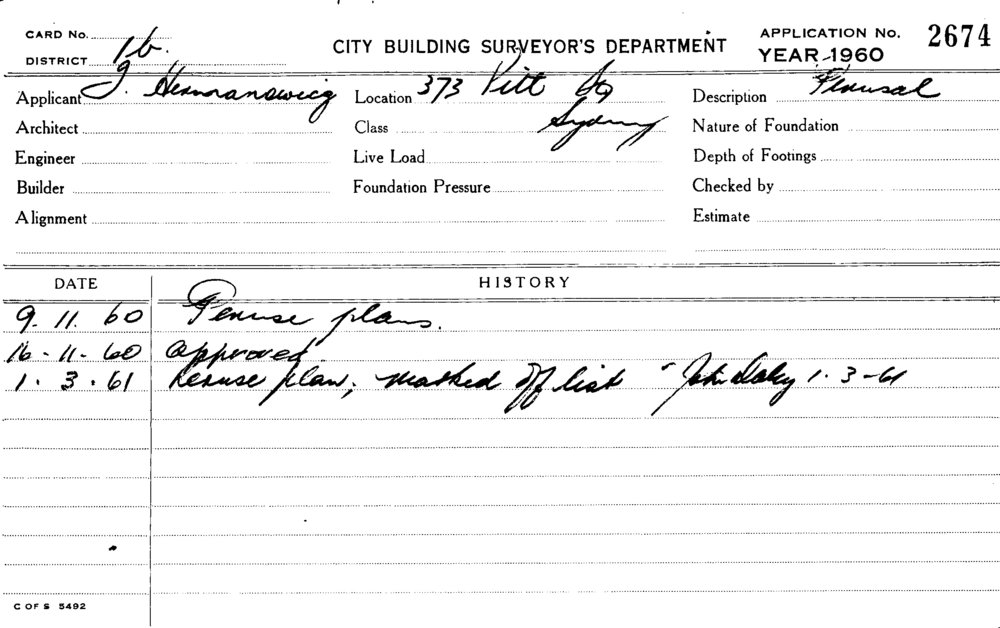 CARD No. 16. CITY BUILDING SURVEYOR'S DEPARTMENT APPLICATION No. 2674
DISTRICT YEAR-1960
Applicant J. Location 373 Pitt St Description Perusal
Architect Class Sydney Nature of Foundation
Engineer Live Load Depth of Footings
Builder Foundation Pressure Checked by
Alignment Estimate
DATE HISTORY
9. 11. 60 Peruse plans.
16-11-60 approved.
1. 3. 61 Peruse plan, marked off list John Daley 1. 3-61
C OF S 5492